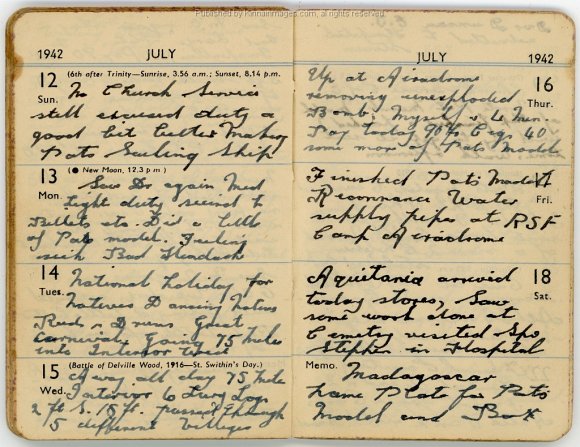 Published by Kinnainimages.com, all rights reserved
1942 JULY
12 (6th after Trinity—Sunrise, 3.56 a.m.; Sunset, 8.14 p.m.
Sun. No Church Service
still excused duty a
good bit better Making
Pats Sailing Ship
13 (● New Moon, 12.3 p.m.)
Mon. Saw Dr again Med
light duty
Billets etc. Did a little
of Pats model. Feeling
sick Bad Headach
14 National Holiday for
Tues. Natives Dancing
Reed & Drums Great
Carnival, Going 75 Miles
into Interior
15 (Battle of Delville Wood, 1916—St. Swithin's Day.)
Wed. Away all day 75 Mile
Interior to
2 ft 6. 18 ft. passed through
15 different Villages
JULY 1942
Up at Airadrome 16
removing unexploded Thur.
Bomb. Myself & 4 Men.
Pay today 90% Cigs 40
some more of Pats Model
Finished Pats Model 17
Reconnance Water Fri.
supply pipes at RSF
Camp Airadrome
Aquitania arrived 18
today stores, Saw Sat.
some work done at
Cemetry visited Spr
Stephen in Hospital
Memo. Madagascar
Name Plate for Pats
Model and Box